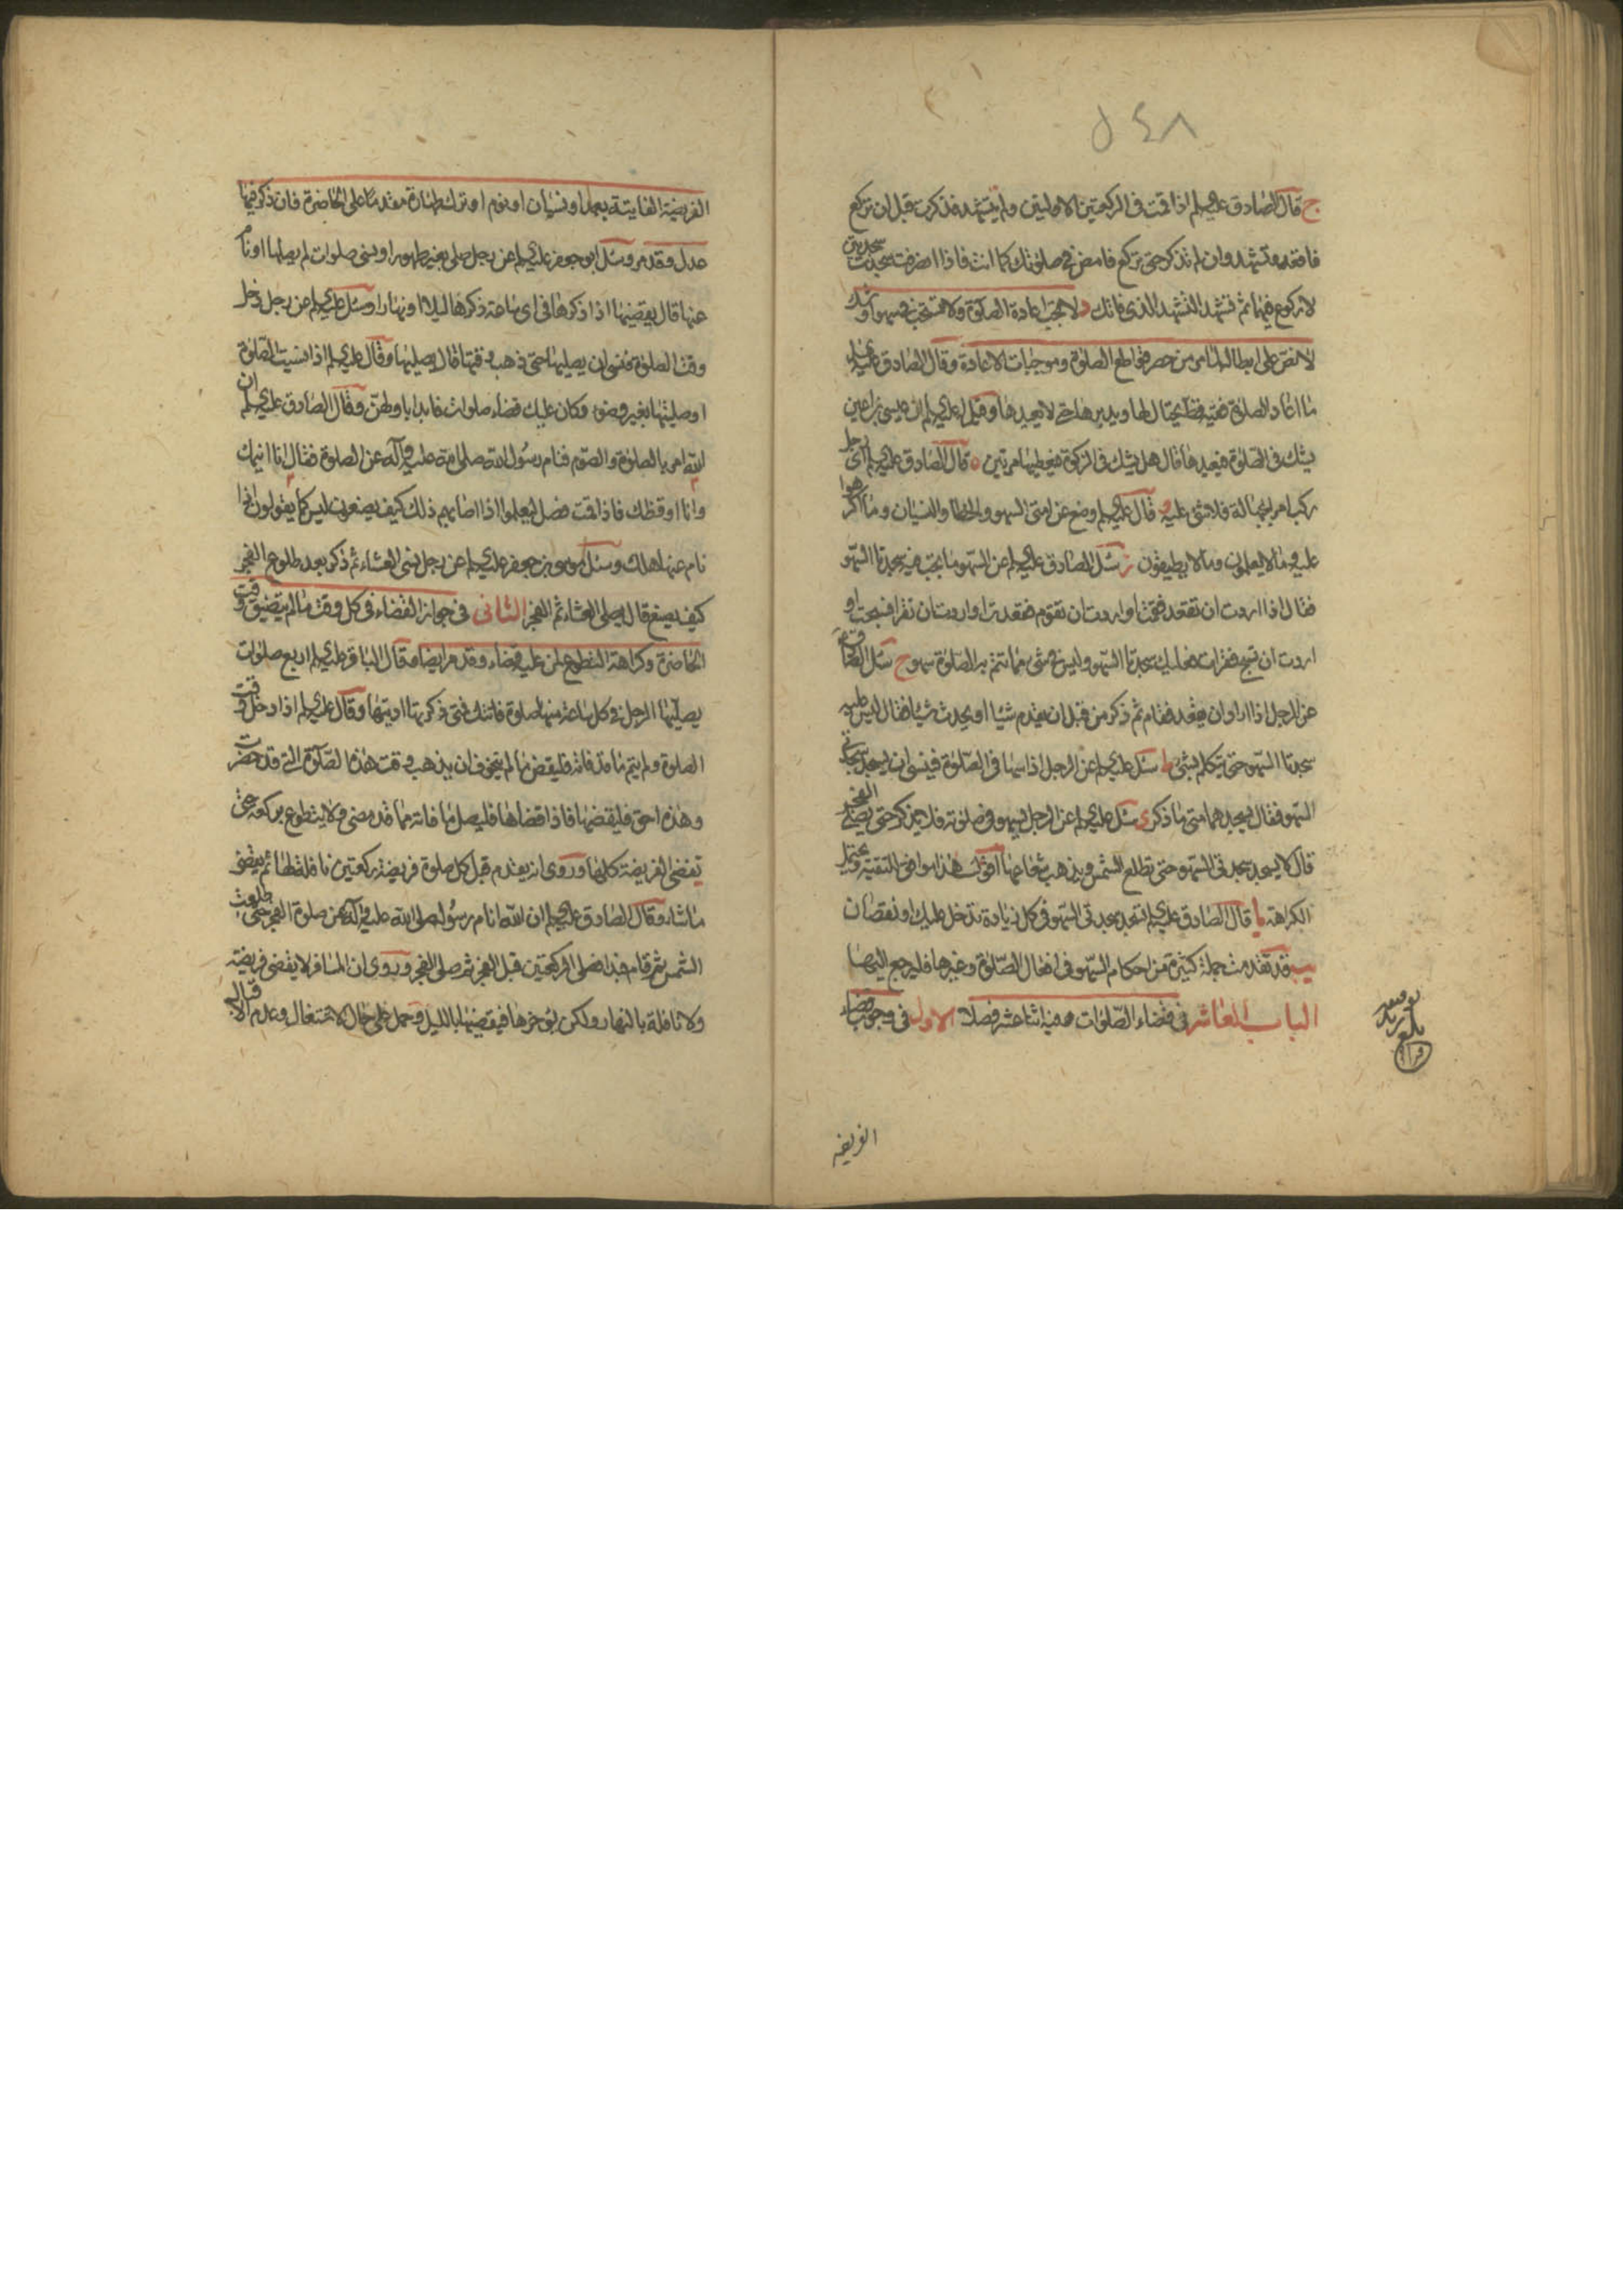 ٥٤٨
ج قال الصادق عليه السلم اذا قمت فى الركعتين الاوليين ولم تتشهد فذكرت قبل ان تركع
فاقعد وتشهد وان لم تذكر حتى تركع فامض فى صلوتك كما انت فاذا انصرفت سجدت سجدتين
لا ركوع فيهما ثم تشهد التشهد الذى فاتك د ولا تجب اعادة الصلوة ولا تستحب بسهو او شك
لا نص على ابطالهما مر من حصر قواطع الصلوة وموجبات الاعادة وقال الصادق عليه السلم
ما اعاد الصلوة فقيه قط يحتال لها ويدبرها حتى لا يعيدها وقيل له عليه السلم ان عيسى بن اعين
يشك فى الصلوة فيعيدها قال هل يشك فى الزكوة فيعطيها مرتين ه قال الصادق عليه السلم اى رجل
ركب امرا بجهالة فلا شئ عليه و قال عليه السلم وضع عن امتى السهو والخطأ والنسيان وما اكرهوا
عليه وما لا يعلمون وما لا يطيقون ز سئل الصادق عليه السلم عن السهو ما تجب فيه سجدتا السهو
فقال اذا اردت ان تقعد فقمت او اردت ان تقوم فقعدت او اردت ان تقرا فسبحت او
اردت ان تسبح فقرات فعليك سجدتا السهو وليس فى شئ مما تتم به الصلوة سهو ح سئل الصادق
عن الرجل اذا اراد ان يقعد فقام ثم ذكر من قبل ان يقدم شيئا او يحدث شيئا فقال ليس عليه
سجدتا السهو حتى يتكلم بشئ ط سئل عليه السلم عن الرجل اذا سها فى الصلوة فينسى ان يسجد سجدتى
السهو فقال يسجدهما متى ما ذكر ى سئل عليه السلم عن الرجل يسهو فى صلوته فلا يذكر حتى يصلى الفجر
قال لا يسجد سجدتى السهو حتى تطلع الشمس ويذهب شعاعها اقول هذا موافق للتقية ويحتمل
الكراهة يا قال الصادق عليه السلم تسجد سجدتى السهو فى كل زيادة تدخل عليك او نقصان
يب قد تقدمت جملة كثيرة من احكام السهو فى افعال الصلوة وغيرها فليرجع اليها
الباب العاشر فى قضاء الصلوات وفيه اثنا عشر فصلا الاول فى وجوب قضاء
الفريضة
الفريضة الفايتة بعمد او نسيان او نوم او ترك طهارة مقدما على الحاضرة فان ذكر فيها
عدل وقد مر وسئل ابو جعفر عليه السلم عن رجل صلى بغير طهور او نسى صلوات لم يصلها او نام
عنها قال يقضيها اذا ذكرها فى اى ساعة ذكرها ليلا او نهارا وسئل عليه السلم عن رجل دخل
وقت الصلوة فنسى ان يصليها حتى ذهب وقتها قال يصليها وقال عليه السلم اذا نسيت الصلوة
او صليتها بغير وضوء وكان عليك قضاء صلوات فابدا باولهن وقال الصادق عليه السلم ان
الله امر بالصلوة والصوم فنام رسول الله صلى الله عليه وآله عن الصلوة فقال انا انيمك
وانا اوقظك فاذا قمت فصل ليعلموا اذا اصابهم ذلك كيف يصنعون ليس كما يقولون اذا
نام عنها هلك وسئل موسى بن جعفر عليه السلم عن رجل نسى العشاء ثم ذكر بعد طلوع الفجر
كيف يصنع قال يصلى العشاء ثم الفجر الثانى فى جواز القضاء فى كل وقت ما لم يتضيق وقت
الحاضرة وكراهة التطوع لمن عليه قضاء وقد مر ايضا وقال الباقر عليه السلم اربع صلوات
يصليها الرجل فى كل ساعة منها صلوة فاتتك فمتى ذكرتها اديتها وقال عليه السلم اذا دخل وقت
الصلوة ولم يتم ما قد فاته فليقض ما لم يتخوف ان يذهب وقت هذه الصلوة التى قد حضرت
وهذه احق فليقضها فاذا قضاها فليصل ما فاته مما قد مضى ولا يتطوع بركعة حتى
تقضى الفريضة كلها وروى انه يقدم قبل كل صلوة فريضة ركعتين نافلة لها ثم يقضى
ما شاء وقال الصادق عليه السلم ان الله انام رسول الله صلى الله عليه وآله عن صلوة الفجر حتى طلعت
الشمس ثم قام فبدا فصلى الركعتين قبل الفجر ثم صلى الفجر وروى ان المسافر لا يقضى فريضة
ولا نافلة بالنهار ولكن يؤخرها فيقضيها بالليل وحمل على حال الاشتغال وعدم الاقبال